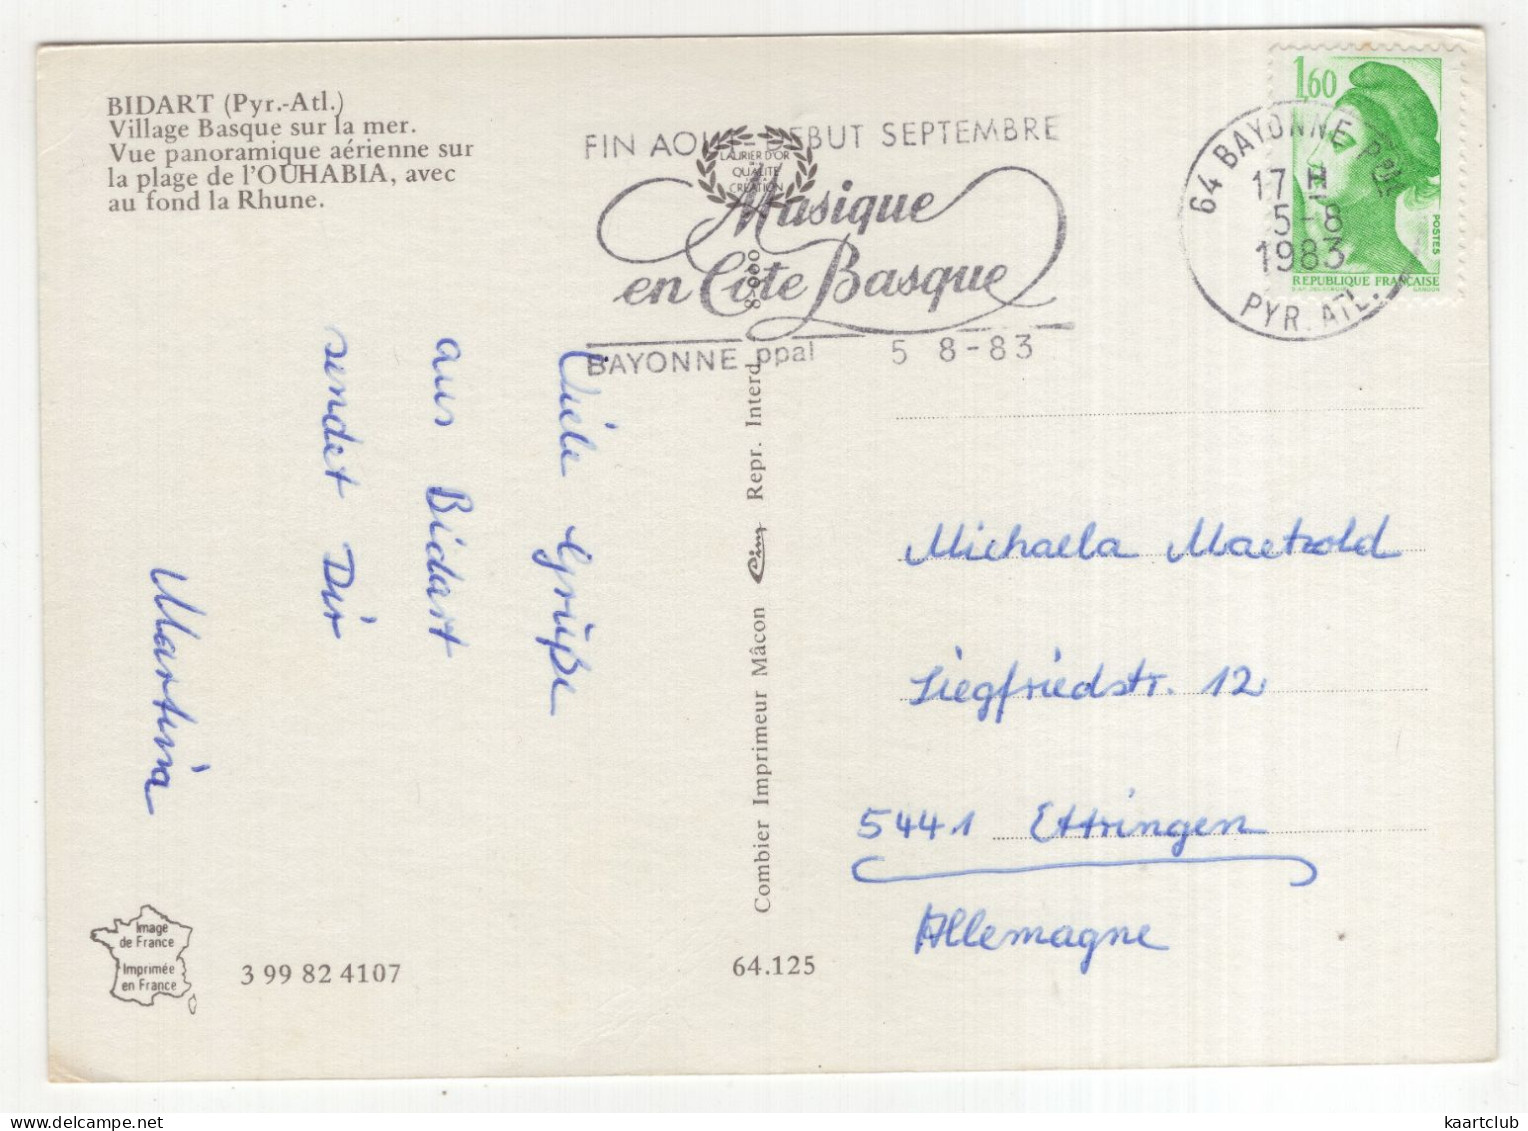 BIDART (Pyr.-Atl.)
Village Basque sur la mer.
Vue panoramique aérienne sur
la plage de l'OUHABIA, avec
au fond la Rhune.
FIN AOUT - DEBUT SEPTEMBRE
LAURIER D'OR
QUALITÉ
CRÉATION
Musique
en Côte Basque
BAYONNE ppal 5 8-83
1,60
POSTES
REPUBLIQUE FRANÇAISE
GANDON
64 BAYONNE PPAL
17 H
5-8
1983
PYR. ATL.
Viele Grüße
aus Bidart
sendet Dir
Martina
Combier Imprimeur Mâcon Cim Repr. Interd.
Michaela Maetzold
Siegfriedstr. 12
5441 Ettringen
Allemagne
Image
de France
Imprimée
en France
3 99 82 4107
64.125
kaartclub